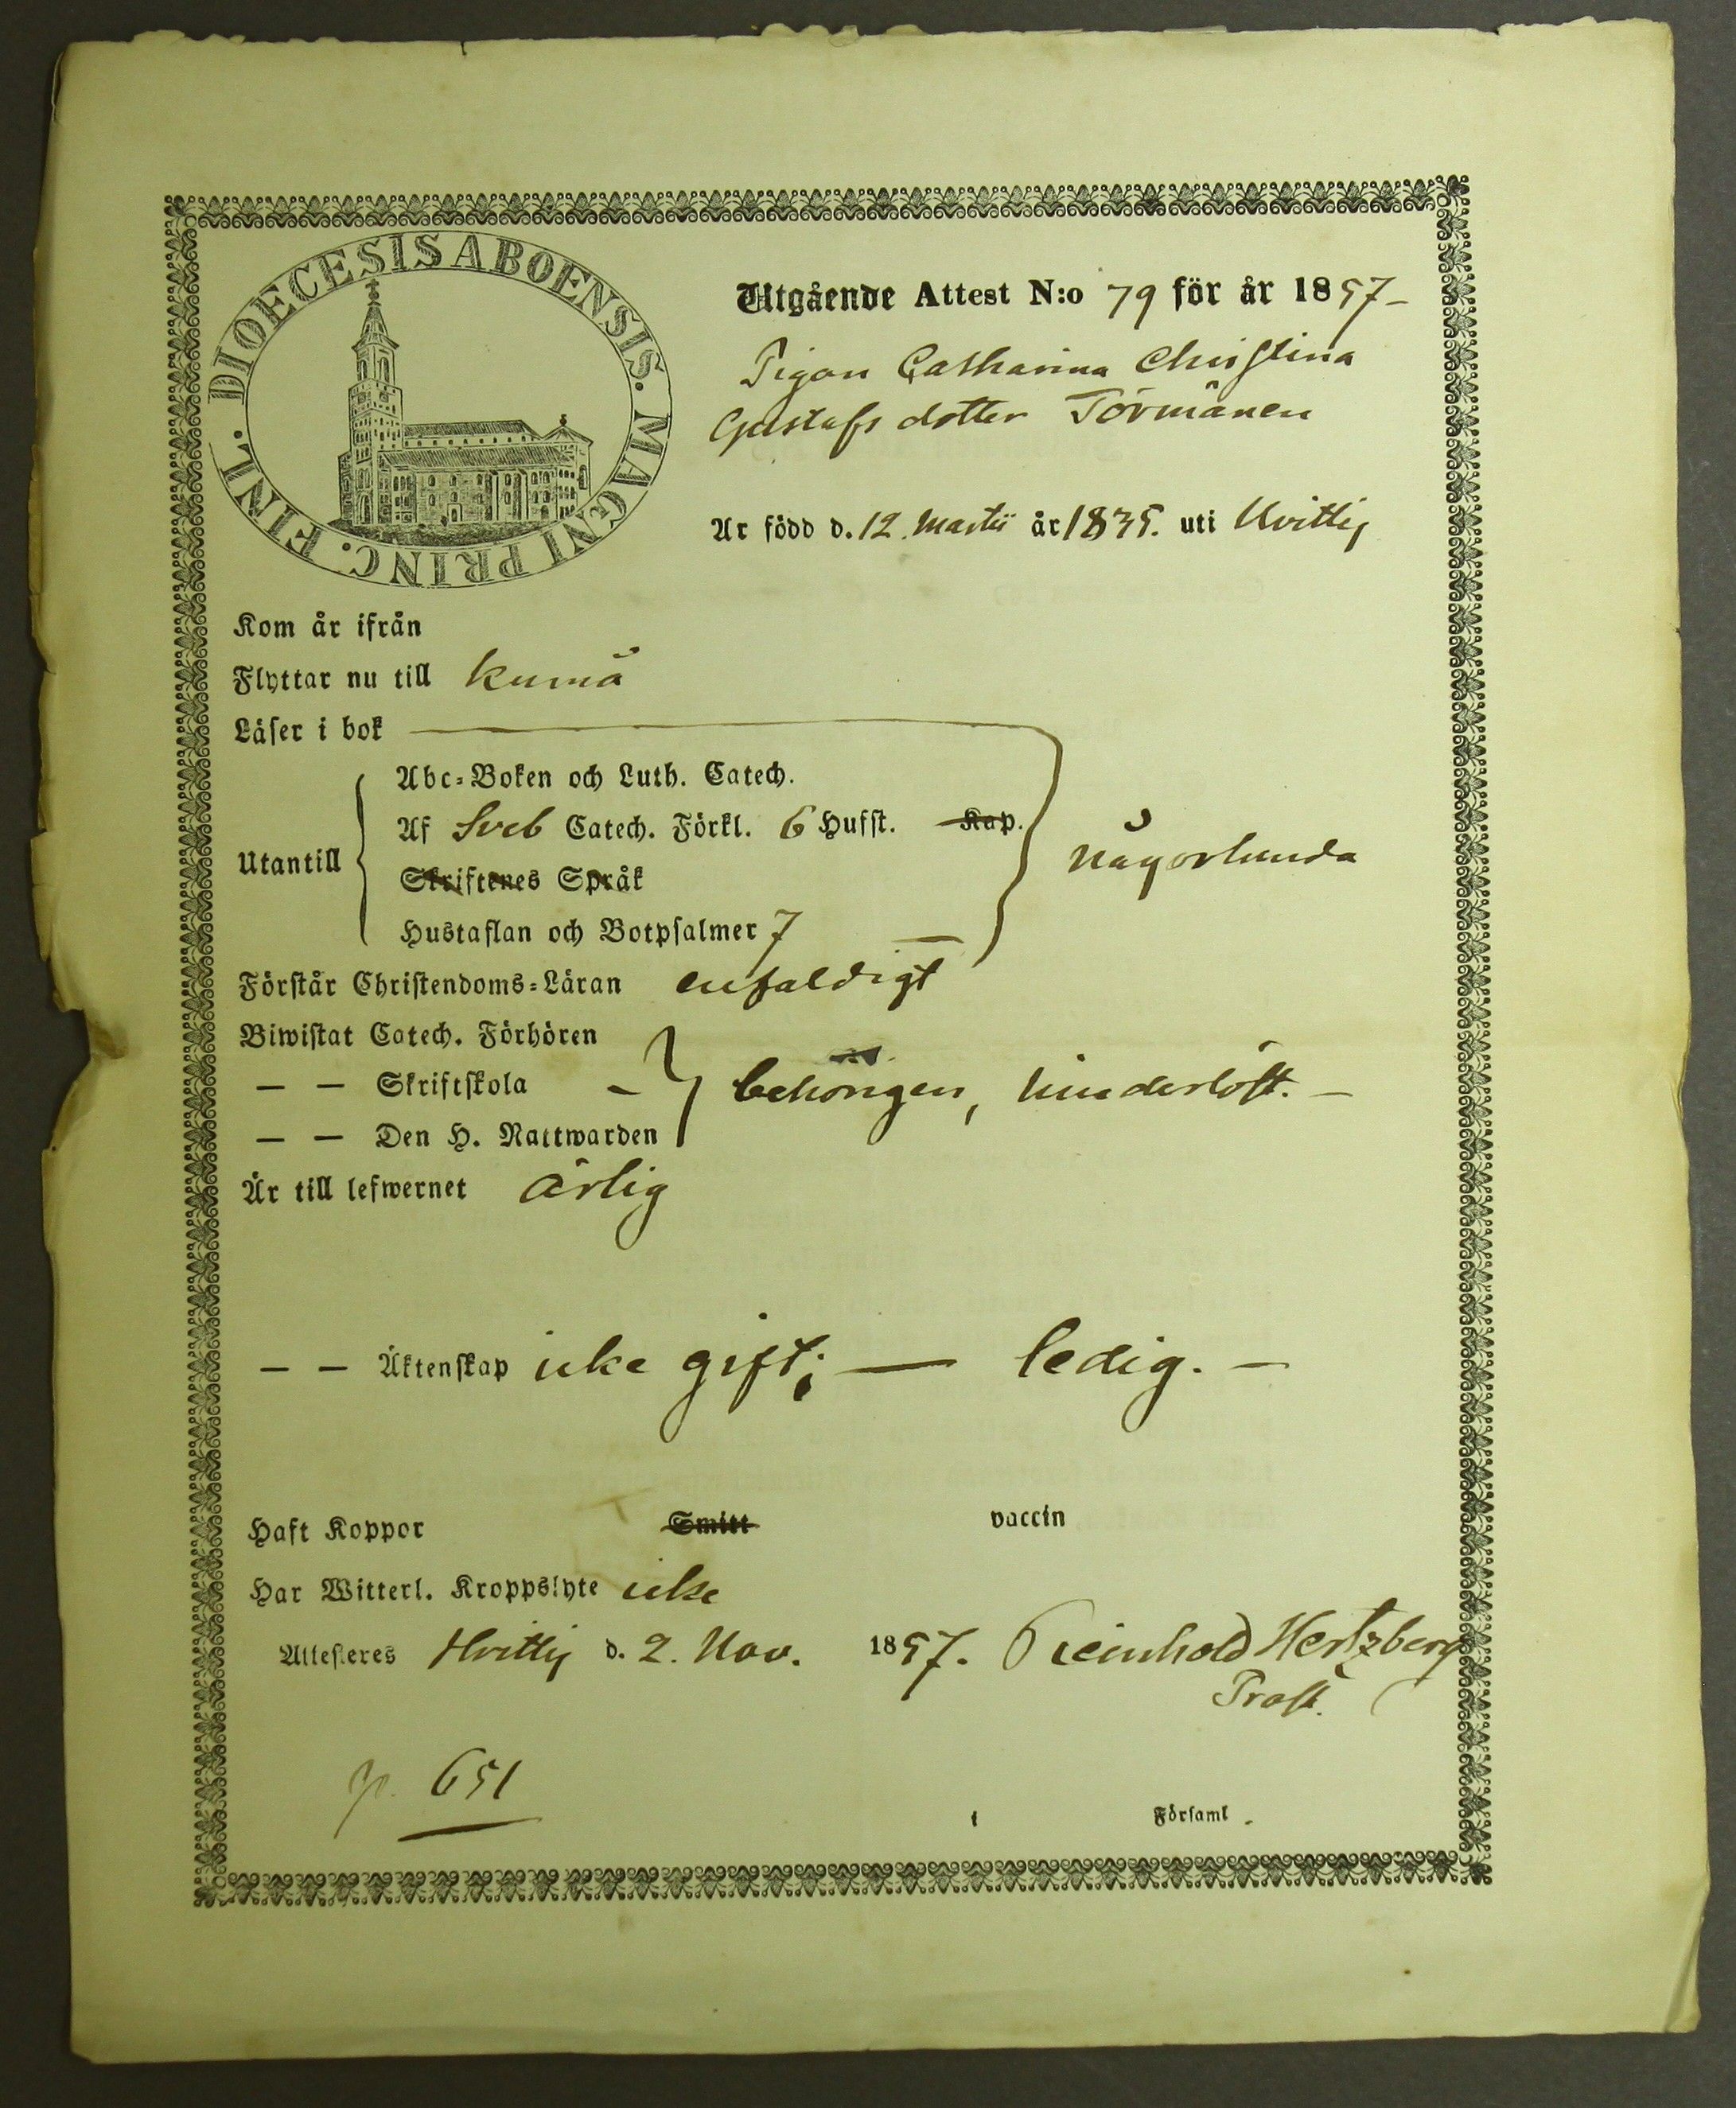 DIOECESIS ABOENSIS. MAGNI PRINC. FINL.
Utgående Attest N:o 79 för år 1857-
Pigan Catharina Christina
Gustafs dotter Törmänen
Är född d. 12. Martii år 1835. uti Hvittis
Kom år ifrån
Flyttar nu till Kumå
Läser i bok
Abc-Boken och Luth. Catech.
Af Sveb Catech. Förkl. 6 Hufst. Kap.
Utantill
någorlunda
Skriftenes Språk
Hustaflan och Botpsalmer 7
Förstår Christendoms-Läran enfaldigt
Biwistat Catech. Förhören
— — Skriftskola - behörigen, hinderlöst. -
— — Den H. Nattwarden
Är till lefwernet ärlig
— — Äktenskap icke gift; — ledig. -
Haft Koppor Smitt vaccin
Har Witterl. Kroppslyte icke
Attesteres Hvittis d. 2. Nov. 1857. Reinhold Hertzberg
Prost.
p. 651
i Församl.